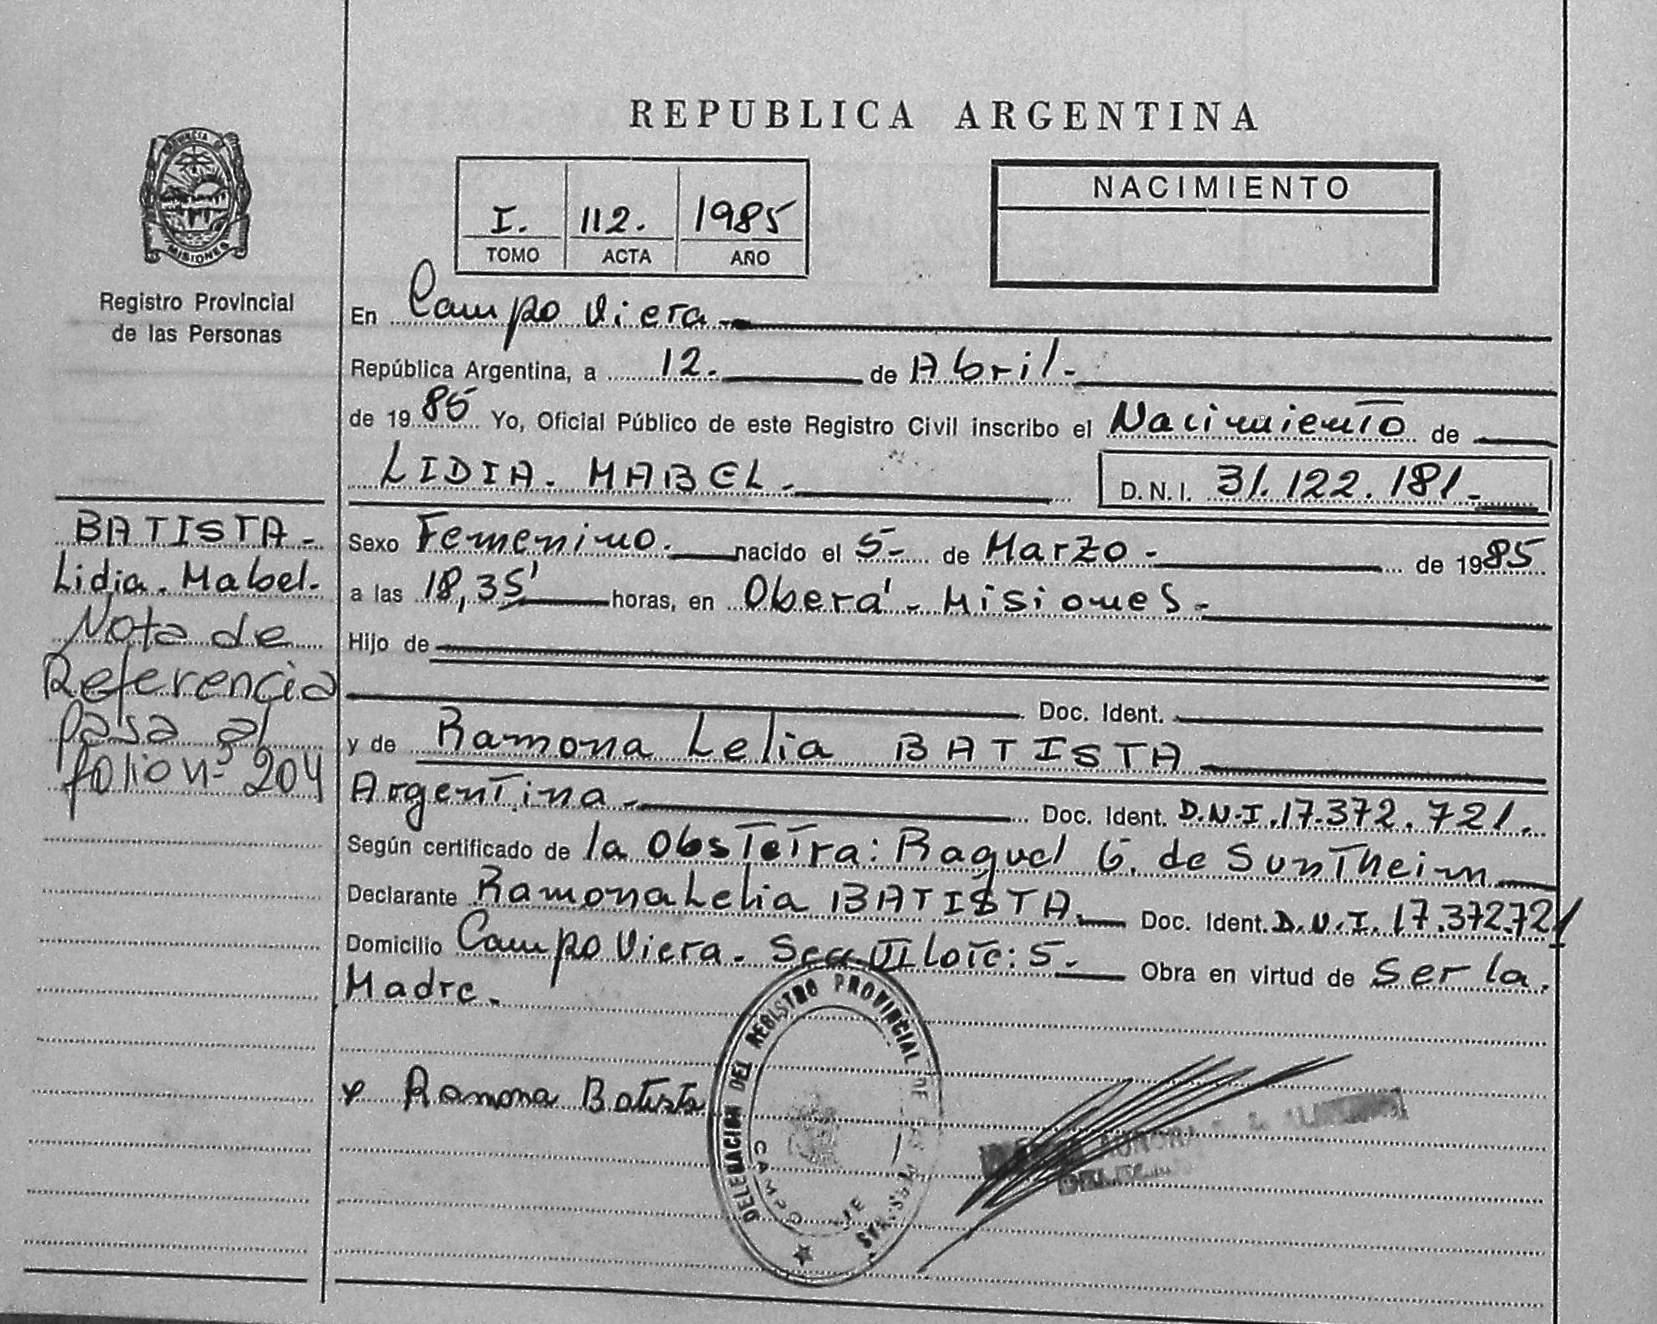 REPUBLICA ARGENTINA
PROVINCIA D
MISIONES
Registro Provincial
de las Personas
I. 112. 1985
TOMO ACTA AÑO
NACIMIENTO
En Campo Viera
República Argentina, a 12. de Abril.
de 1985 Yo, Oficial Público de este Registro Civil inscribo el Nacimiento de
LIDIA. MABEL. D.N.I. 31.122.181.
BATISTA
Lidia. Mabel.
Nota de
Referencia
pasa al
folio nº 204
Sexo Femenino. nacido el 5 de Marzo de 1985
a las 18,35' horas, en Oberá - Misiones
Hijo de
Doc. Ident.
y de Ramona Lelia BATISTA
Argentina Doc. Ident. D.N.I. 17.372.721.
Según certificado de la Obstetra: Raquel G. de Suntheim
Declarante Ramona Lelia BATISTA. Doc. Ident. D.N.I. 17.372.721
Domicilio Campo Viera. Secc VI Lote: 5. Obra en virtud de Ser la.
Madre.
x Ramona Batista
DELEGACION DEL REGISTRO PROVINCIAL DE
CAMPO
AURORA